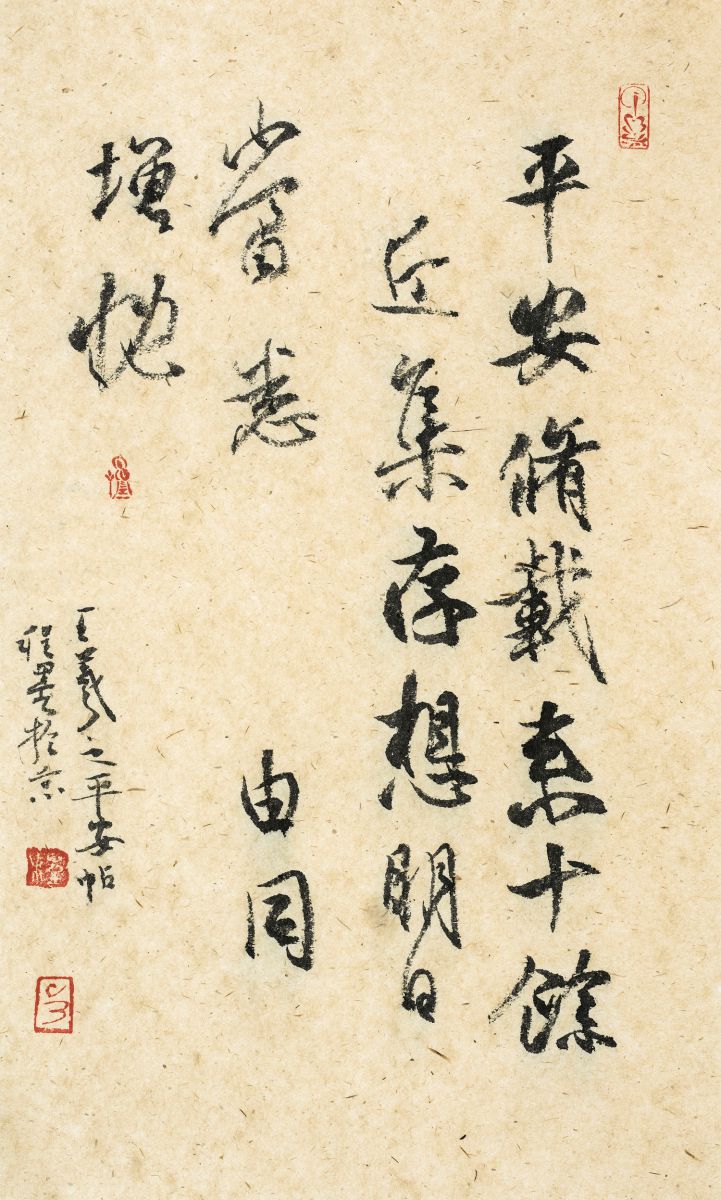 平安脩載来十餘
近集存想明日
當悉 由同
增慨
王羲之平安帖
於京